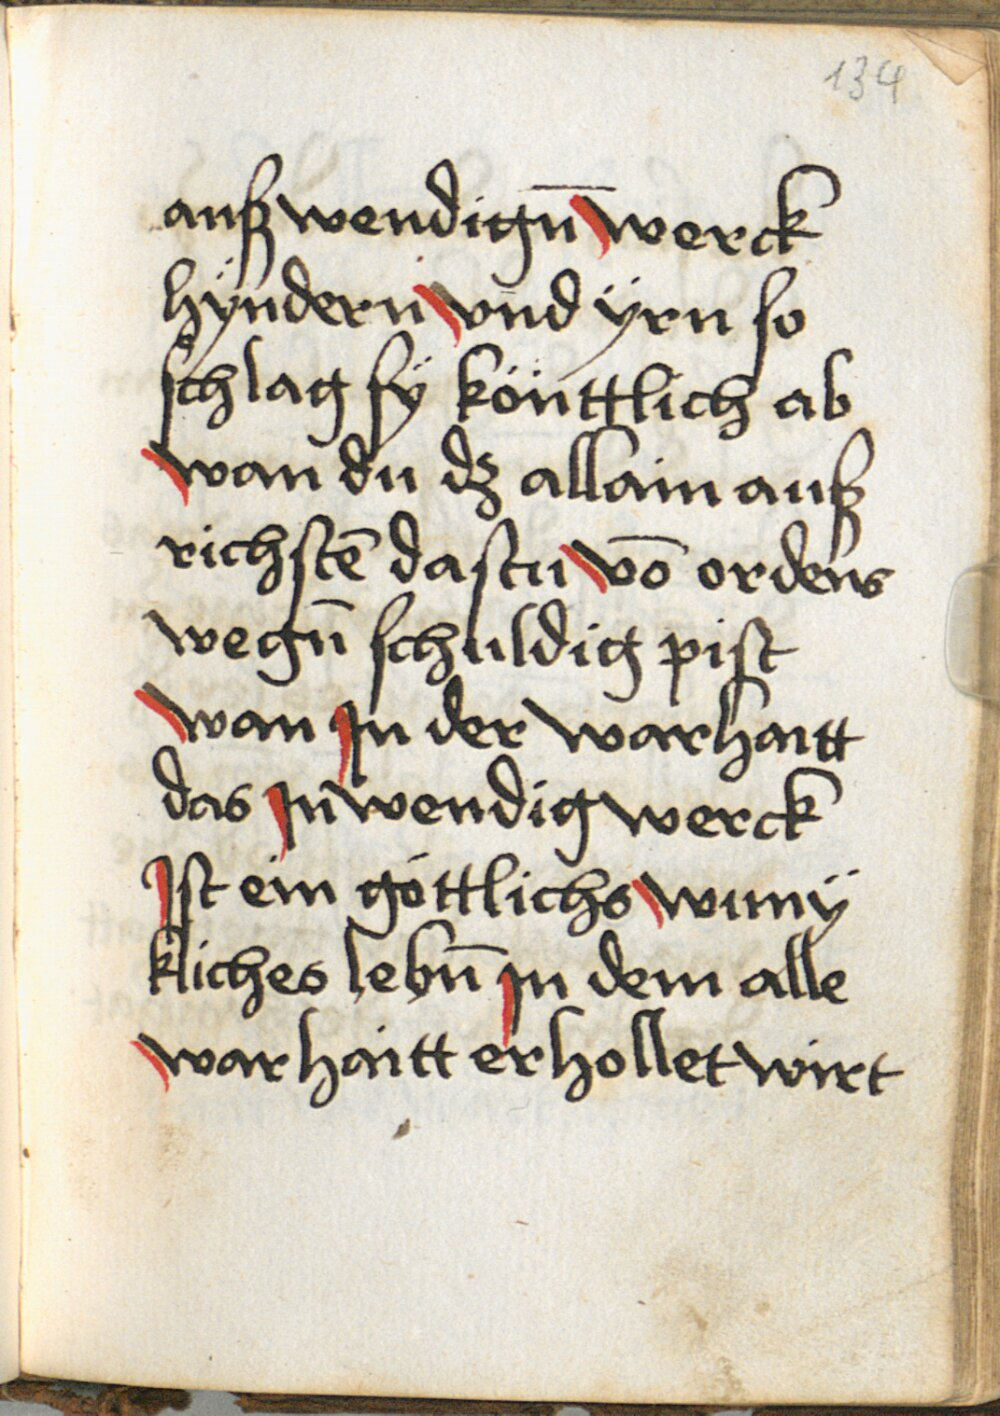 134
außwendign̄ werck
hÿndern vnd ÿrn so
schlag sÿ könttlich ab
wan du dz allain auß
richstē dastu vō ordens
wegn̄ schuldig pist
wan Jn der warhaitt
das Jnwendig werck
Jst ein göttlichs wunÿ
kliches lebn̄ Jn dem alle
warhaitt erhollet wirt